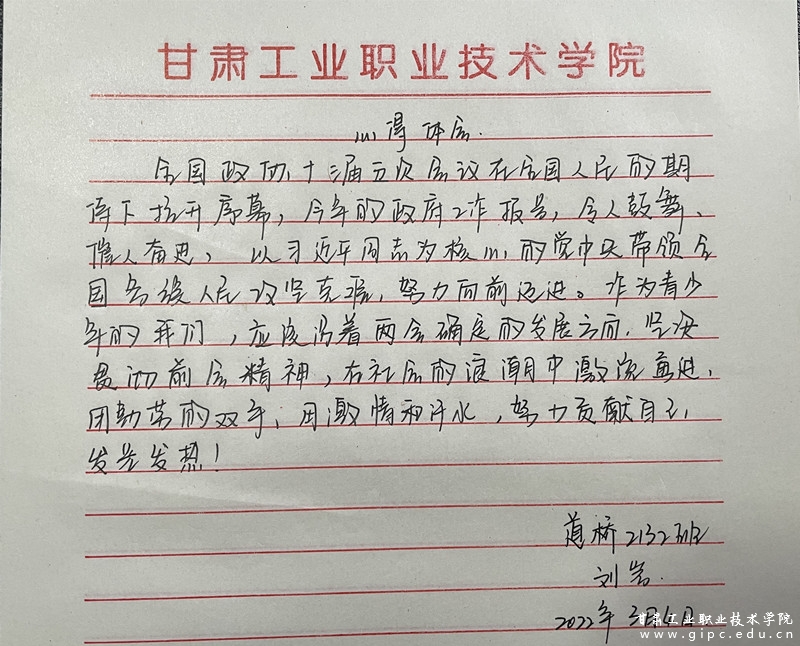 甘肃工业职业技术学院
心得体会.
全国政协十三届五次会议在全国人民的期
待下拉开序幕，今年的政府工作报告，令人鼓舞、
催人奋进，以习近平同志为核心的党中央带领全
国各级人民攻坚克难，努力向前迈进。作为青少
年的我们，应该沿着两会确定的发展方向，坚决
贯彻前会精神，在社会的浪潮中激流勇进，
用勤劳的双手，用激情和汗水，努力贡献自己，
发光发热！
道桥2132班
刘岩.
2022年3月 日
甘肃工业职业技术学院
www.gipc.edu.cn